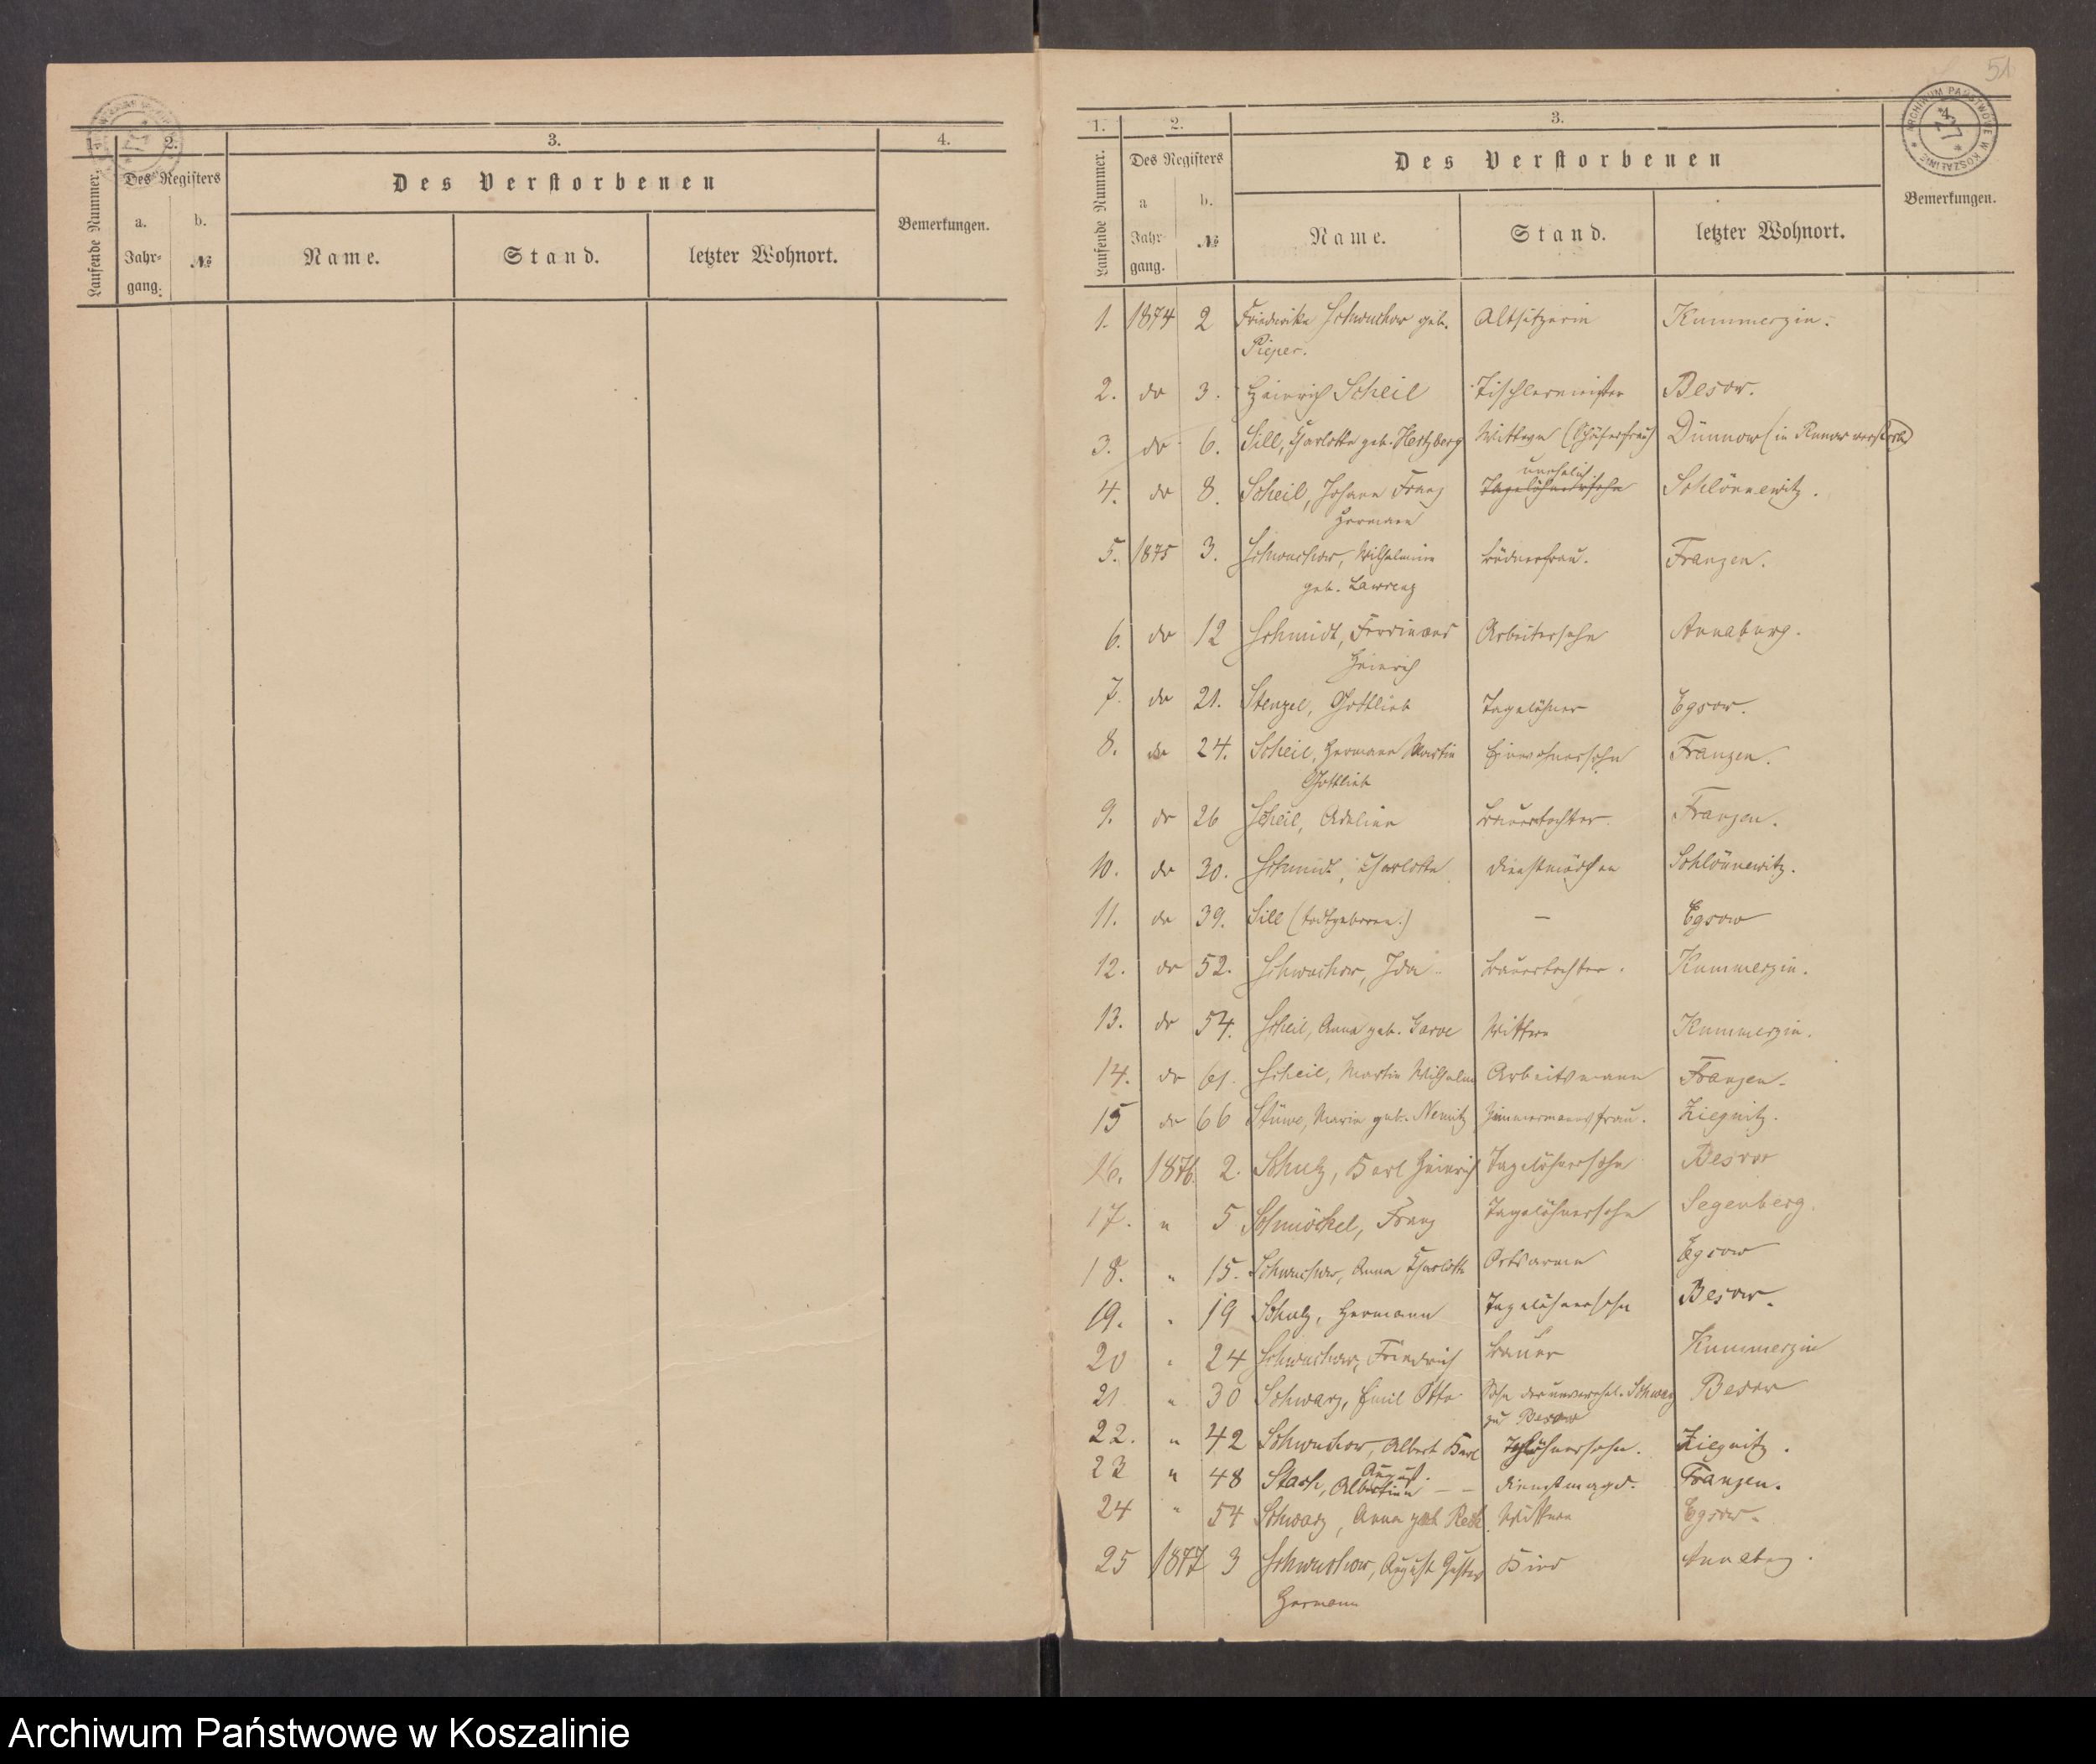 1. 2. 3. 4.
Laufende Nummer.
Des Registers
Des Verstorbenen
Bemerkungen.
a. b.
Jahr-
gang. №
Name. Stand. letzter Wohnort.
51
1. 2. 3. 4.
ARCHIWUM PAŃSTWOWE W KOSZALINIE
Laufende Nummer.
Des Registers
Des Verstorbenen
Bemerkungen.
a b.
Jahr-
gang. №
Name. Stand. letzter Wohnort.
1. 1874 2 Friederike Schwuchow geb. Altsitzerin Kummerzin.
Pieper.
2. do 3. Heinrich Scheil Tischlermeister Besow.
3. do 6. Sill, Charlotte geb. Hertzberg Wittwe (Schäferfrau) Dünnow (in Runow verstorb.)
unehelich
4. do 8. Scheil, Johann Franz Tagelöhnersohn Schlönnewitz.
Hermann
5. 1875 3. Schwuchow, Wilhelmine Büdnerfrau. Franzen.
geb. Lawrenz
6. do 12 Schmidt, Ferdinand Arbeitersohn Annaburg.
Heinrich
7. do 21. Stenzel, Gottlieb Tagelöhner Egsow.
8. do 24. Scheil, Hermann Martin Einwohnersohn Franzen.
Gottlieb
9. do 26 Scheil, Adeline Bauertochter. Franzen.
10. do 30. Schmidt, Charlotte Dienstmädchen Schlönnewitz.
11. do 39. Sill (todtgeboren.) — Egsow
12. do 52. Schwuchow, Ida Bauertochter. Kummerzin.
13. do 54. Scheil, Anna geb. Garve Wittwe Kummerzin.
14. do 61. Scheil, Martin Wilhelm Arbeitsmann Franzen.
15 do 66 Stüwe, Marie geb. Nemitz Zimmermannsfrau. Ziegnitz.
16. 1876. 2. Schulz, Karl Heinrich Tagelöhnersohn Besow
17. " 5 Schmöckel, Franz Tagelöhnersohn Segenberg.
18. " 15. Schwuchow, Anna Charlotte Ortsarme Egsow
19. " 19 Schulz, Hermann Tagelöhnersohn Besow.
20 " 24 Schwuchow, Friedrich Bauer Kummerzin
21 " 30 Schwarz, Emil Otto Sohn der unverehel. Schwarz Besow
zu Besow
22. " 42 Schwuchow, Albert Karl Tagelöhnersohn. Ziegnitz.
August.
23 " 48 Stach, Albertine — — Dienstmagd. Franzen.
24 " 54 Schwarz, Anna geb. Wittwe Egsow.
25 1877 3 Schwuchow, August Gustav Kind Annabg.
Hermann
Archiwum Państwowe w Koszalinie